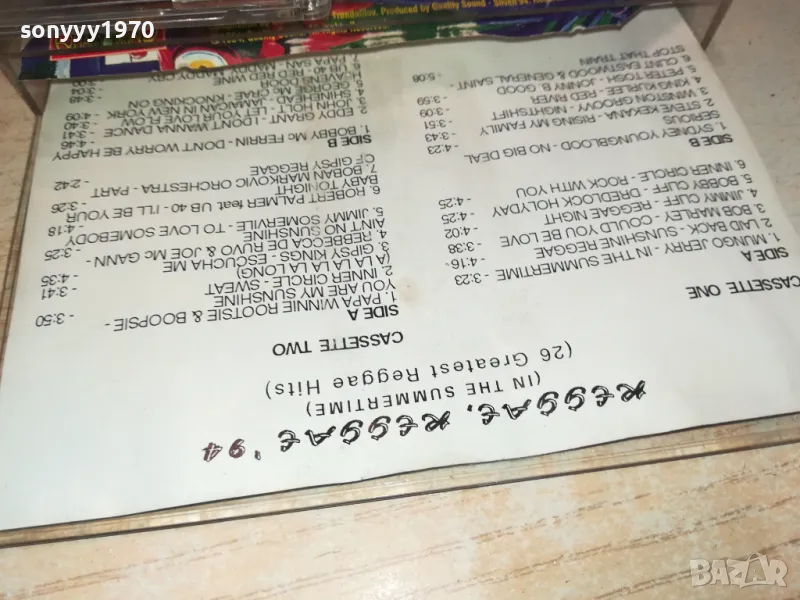 sonyyy1970
REGGAE, REGGAE '94
(IN THE SUMMERTIME)
(26 Greatest Reggae Hits)
CASSETTE ONE
SIDE A
1. MUNGO JERRY - IN THE SUMMERTIME - 3:23
2. LAID BACK - SUNSHINE REGGAE - 4:16
3. BOB MARLEY - COULD YOU BE LOVE - 3:38
4. JIMMY CLIFF - REGGAE NIGHT - 4:02
5. BOBBY CLIFF - DREDLOCK HOLYDAY - 4:25
6. INNER CIRCLE - ROCK WITH YOU - 4:25
SIDE B
1. SYDNEY YOUNGBLOOD - NO BIG DEAL - 4:23
SERIOUS
2. STEVE KEKANA - RISING MY FAMILY - 3:43
3. WINSTON GROOVY - NIGHTSHIFT - 3:51
4. KING KURLEE - RED RIVER - 3:09
5. PETER TOSH - JONNY B. GOOD - 3:59
6. CLINT EASTWOOD & GENERAL SAINT -
STOP THAT TRAIN - 5:06
CASSETTE TWO
SIDE A
1. PAPA WINNIE ROOTSIE & BOOPSIE -
YOU ARE MY SUNSHINE - 3:50
2. INNER CIRCLE - SWEAT - 3:41
(A LA LA LA LA LONG)
3. GIPSY KINGS - ESCUCHA ME - 4:35
4. REBBECCA DE RUVO & JOE Mc GANN -
AIN'T NO SUNSHINE - 3:25
5. JIMMY SOMERVILE - TO LOVE SOMEBODY - 4:18
6. ROBERT PALMER feat. UB 40 - I'LL BE YOUR
BABY TONIGHT - 3:26
7. BOBAN MARKOVIC ORCHESTRA - PART
OF GIPSY REGGAE - 2:42
SIDE B
1. BOBBY Mc FERRIN - DON'T WORRY BE HAPPY - 4:46
2. EDDY GRANT - I DON'T WANNA DANCE - 3:41
3. JOHN HOLT - LET YOUR LOVE FLOW - 3:40
4. SHINEHEAD - JAMAICAN IN NEW YORK - 4:09
5. GEORGE Mc CRAE - KNOCKING ON
HEVENS DOOR - 3:48
6. UB 40 - RED RED WINE - 3:04
7. PAPA SAN - MADDY MADDY CRY
BAZAR